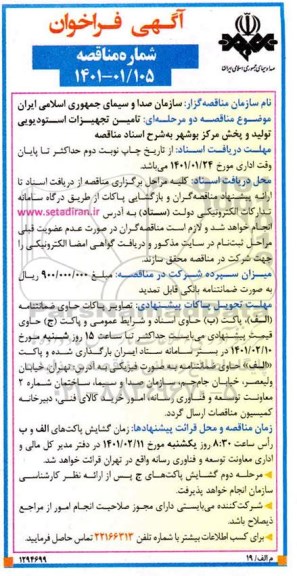 آگهی فراخوان
شماره مناقصه
۱۴۰۱-۰۱/۱۰۵
صدا و سیمای جمهوری اسلامی ایران
نام سازمان مناقصه‌گزار: سازمان صدا و سیمای جمهوری اسلامی ایران
موضوع مناقصه دو مرحله‌ای: تامین تجهیزات استودیویی
تولید و پخش مرکز بوشهر به‌شرح اسناد مناقصه
مهلت دریافت اسناد: از تاریخ چاپ نوبت دوم حداکثر تا پایان
وقت اداری مورخ ۱۴۰۱/۰۱/۲۴ می‌باشد
محل دریافت اسناد: کلیه مراحل برگزاری مناقصه از دریافت اسناد تا
ارائه پیشنهاد مناقصه‌گران و بازگشایی پاکات از طریق درگاه سامانه
تدارکات الکترونیکی دولت (ستاد) به آدرس www.setadiran.ir
انجام خواهد شد و لازم است مناقصه‌گران در صورت عدم عضویت قبلی
مراحل ثبت‌نام در سایت مذکور و دریافت گواهی امضا الکترونیکی را
جهت شرکت در مناقصه محقق سازند.
میزان سپرده شرکت در مناقصه: مبلغ ۹۰۰/۰۰۰/۰۰۰ ریال
به صورت ضمانتنامه بانکی قابل تمدید
مهلت تحویل پاکات پیشنهادی: تصاویر پاکات حاوی ضمانتنامه
(الف)، پاکت (ب) حاوی اسناد و شرایط عمومی و پاکت (ج) حاوی
قیمت پیشنهادی می‌بایست حداکثر تا ساعت ۱۵ روز شنبه مورخ
۱۴۰۱/۰۲/۱۰ در بستر سامانه ستاد ایران بارگذاری شده و پاکت
«الف» حاوی ضمانتنامه به صورت فیزیکی به آدرس: تهران، خیابان
ولیعصر، خیابان جام‌جم، سازمان صدا و سیما، ساختمان شماره ۲
معاونت توسعه و فناوری رسانه، امور خرید کالای فنی، دبیرخانه
کمیسیون مناقصات ارسال گردد.
زمان مناقصه و محل قرائت پیشنهادها: زمان گشایش پاکت‌های الف و ب
رأس ساعت ۸:۳۰ روز یکشنبه مورخ ۱۴۰۱/۰۲/۱۱ در دفتر مدیر کل مالی و
اداری معاونت توسعه و فناوری رسانه واقع در تهران قرائت خواهد شد.
مرحله دوم گشایش پاکت‌های ج پس از ارائه نظر کارشناسی
سازمان انجام خواهد پذیرفت.
شرکت‌کننده می‌بایستی دارای مجوز صلاحیت انجام امور از مراجع
ذیصلاح باشد.
برای کسب اطلاعات بیشتر با شماره تلفن ۲۲۱۶۶۳۱۳ تماس حاصل فرمایید.
م الف/ ۱۹
۱۲۹۴۶۹۹